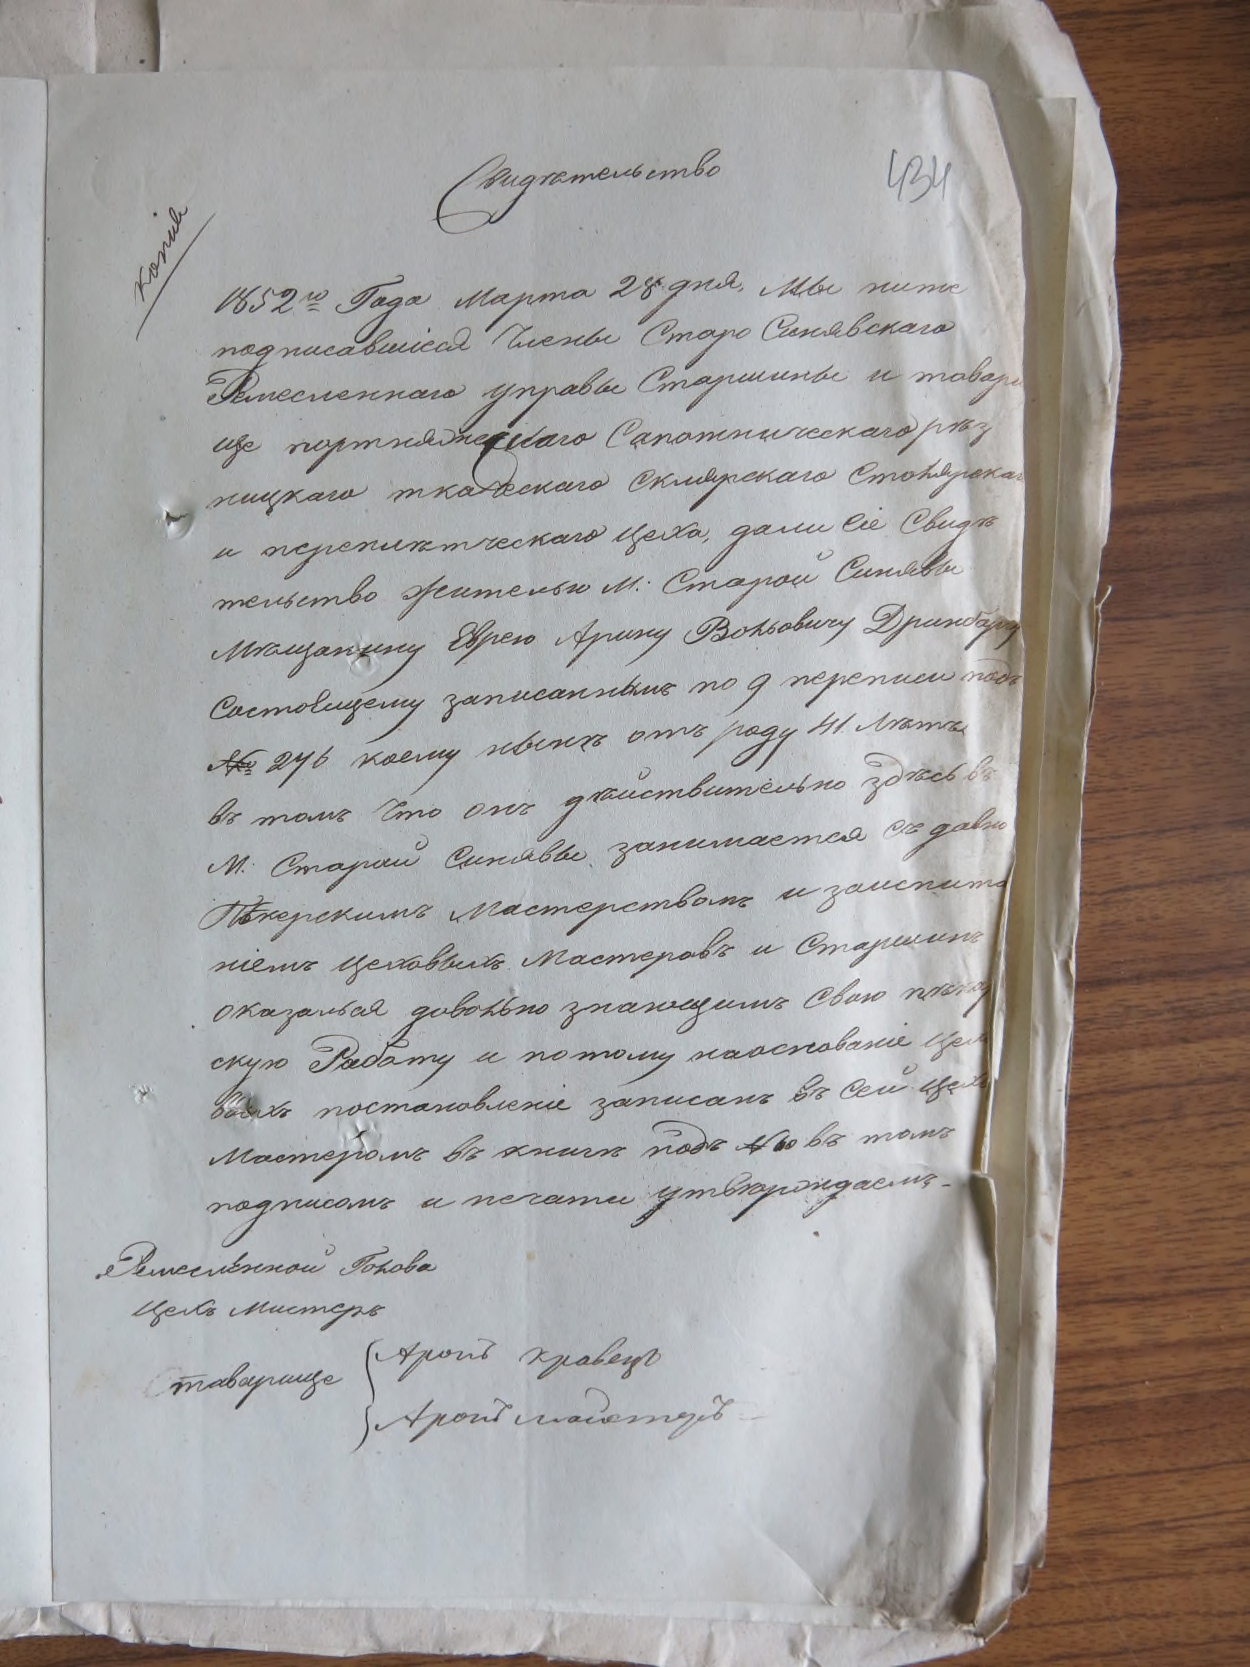 Свидѣтельство
434
копія
1852го Года Марта 28 дня, Мы ниже
подписавшіеся Члены Старо Синявскаго
Ремесленнаго управы Старшины и товари
ще портняжескаго Сапотническаго рѣз
ницкаго ткаческаго Склярскаго Столярскаг
и переплѣтческаго Цеха, дали Сіе Свидѣ
тельство жителью М: Старой Синявы
Мѣщанину Еврею Арину Вольовичу Дринбаргу
Состоящему записаннымъ по 9 переписи подъ
№ 276 коему нынѣ отъ роду 41 Лѣтъ
въ томъ Что онъ дѣйствительно здѣсь въ
М: Старой Синявы занимается съ давно
Пѣкерскимъ Мастерствомъ и заиспита
ніемъ Цеховыхъ Мастеровъ и Старшинъ
оказалься довольно знающимъ Свою пѣкер
скую Работу и потому наоснованіе Цехо
выхъ постановленіе записанъ въ Сей Цехъ
Мастеромъ въ книгѣ подъ № 10 въ томъ
подписомъ и печати утвѣрждаемъ -
Ремесленной Голова
Цехъ Мистеръ
Ставарище
Аронъ Кравецъ
Аронъ майстеръ